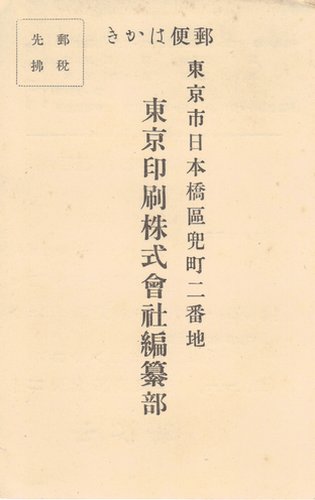 郵便はかき
郵税
先拂
東京市日本橋區兜町二番地
東京印刷株式會社編纂部